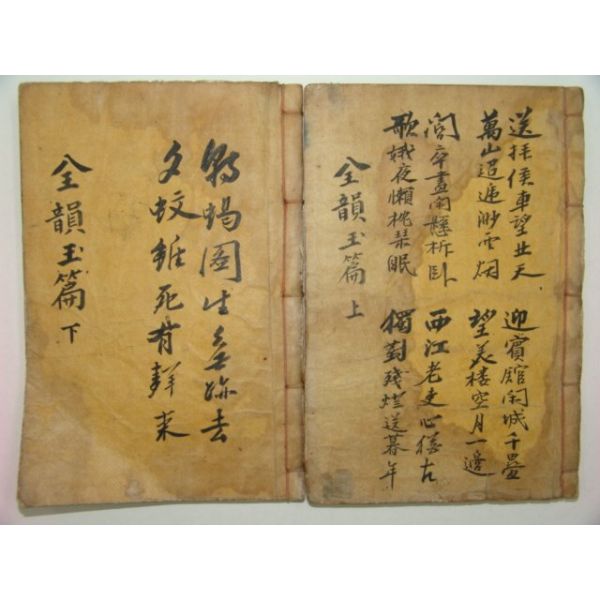 送拜侯車望北天 迎賓館闲城千疊
萬山迢遞渺雲烟 望美樓空月一邊
卒晝闲懸柝臥 西江老吏心猶古
歌娥夜懶枕琹眠 獨對殘燈送暮年
全韻玉篇 上
蝎圖生無跡去
夕蚊雖死有鮮来
全韻玉篇 下